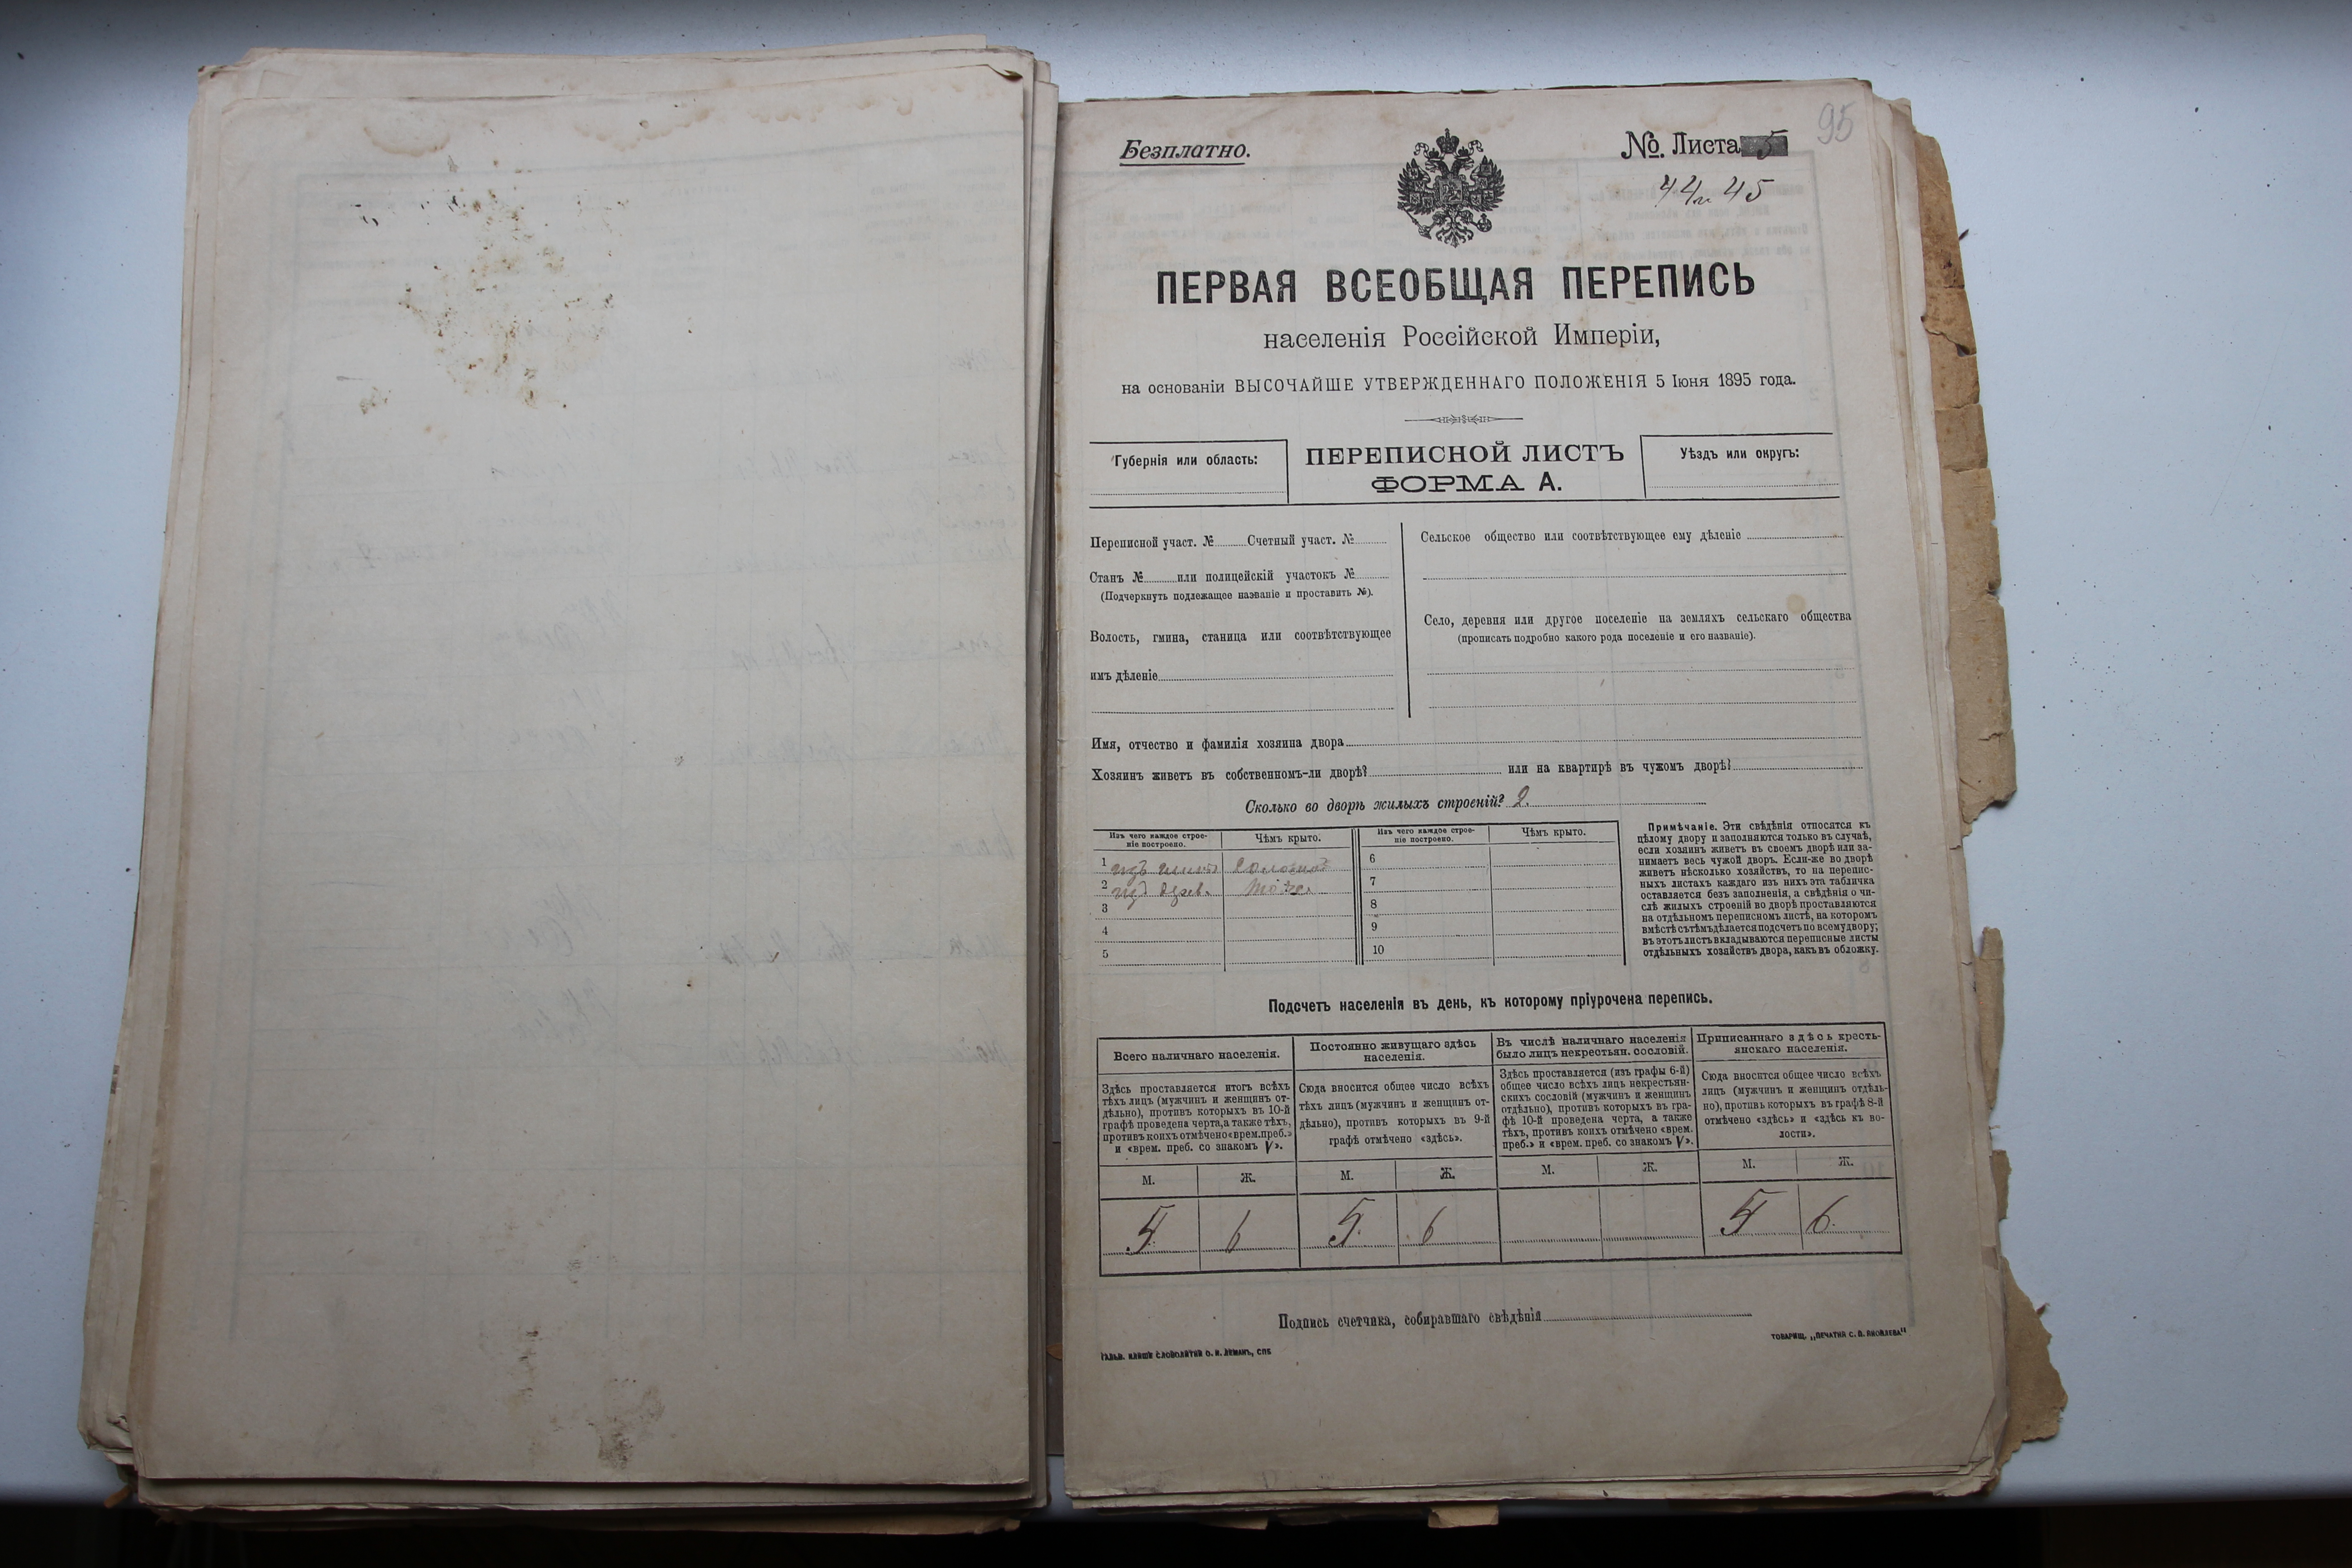 95
Безплатно.
№. Листа 5
44 и 45
ПЕРВАЯ ВСЕОБЩАЯ ПЕРЕПИСЬ
населенія Россійской Имперіи,
на основаніи ВЫСОЧАЙШЕ УТВЕРЖДЕННАГО ПОЛОЖЕНІЯ 5 Іюня 1895 года.
Губернія или область:
ПЕРЕПИСНОЙ ЛИСТЪ
ФОРМА А.
Уѣздъ или округъ:
Переписной участ. № Счетный участ. №
Станъ № или полицейскій участокъ №
(Подчеркнуть подлежащее названіе и проставить №).
Волость, гмина, станица или соотвѣтствующее
имъ дѣленіе
Сельское общество или соотвѣтствующее ему дѣленіе
Село, деревня или другое поселеніе на земляхъ сельскаго общества
(прописать подробно какого рода поселеніе и его названіе).
Имя, отчество и фамилія хозяина двора
Хозяинъ живетъ въ собственномъ-ли дворѣ? или на квартирѣ въ чужомъ дворѣ?
Сколько во дворѣ жилыхъ строеній? 2.
Изъ чего каждое строе-
ніе построено.
Чѣмъ крыто.
1 изъ глины Соломой
2 изъ дерев. тоже
3
4
5
Изъ чего каждое строе-
ніе построено.
Чѣмъ крыто.
6
7
8
9
10
Примѣчаніе. Эти свѣдѣнія относятся къ
цѣлому двору и заполняются только въ случаѣ,
если хозяинъ живетъ въ своемъ дворѣ или за-
нимаетъ весь чужой дворъ. Если-же во дворѣ
живетъ нѣсколько хозяйствъ, то на перепис-
ныхъ листахъ каждаго изъ нихъ эта табличка
оставляется безъ заполненія, а свѣдѣнія о чи-
слѣ жилыхъ строеній во дворѣ проставляются
на отдѣльномъ переписномъ листѣ, на которомъ
вмѣстѣ съ тѣмъ дѣлается подсчетъ по всему двору;
въ этотъ листъ вкладываются переписные листы
отдѣльныхъ хозяйствъ двора, какъ въ обложку.
Подсчетъ населенія въ день, къ которому пріурочена перепись.
Всего наличнаго населенія.
Здѣсь проставляется итогъ всѣхъ
тѣхъ лицъ (мужчинъ и женщинъ от-
дѣльно), противъ которыхъ въ 10-й
графѣ проведена черта, а также тѣхъ,
противъ коихъ отмѣчено «врем. преб.»
и «врем. преб. со знакомъ V».
М. Ж.
5 6
Постоянно живущаго здѣсь
населенія.
Сюда вносится общее число всѣхъ
тѣхъ лицъ (мужчинъ и женщинъ от-
дѣльно), противъ которыхъ въ 9-й
графѣ отмѣчено «здѣсь».
М. Ж.
5. 6
Въ числѣ наличнаго населенія
было лицъ некрестьян. сословій.
Здѣсь проставляется (изъ графы 6-й)
общее число всѣхъ лицъ некрестьян-
скихъ сословій (мужчинъ и женщинъ
отдѣльно), противъ которыхъ въ гра-
фѣ 10-й проведена черта, а также
тѣхъ, противъ коихъ отмѣчено «врем.
преб.» и «врем. преб. со знакомъ V».
М. Ж.
Приписаннаго здѣсь кресть-
янскаго населенія.
Сюда вносится общее число всѣхъ
лицъ (мужчинъ и женщинъ отдѣль-
но), противъ которыхъ въ графѣ 8-й
отмѣчено «здѣсь» и «здѣсь къ во-
лости».
М. Ж.
5 6.
Подпись счетчика, собиравшаго свѣдѣнія
ТОВАРИЩ. „ПЕЧАТНЯ С. П. ЯКОВЛЕВА"
СЛОВОЛИТНИ О. И. ЛЕМАНЪ, СПБ